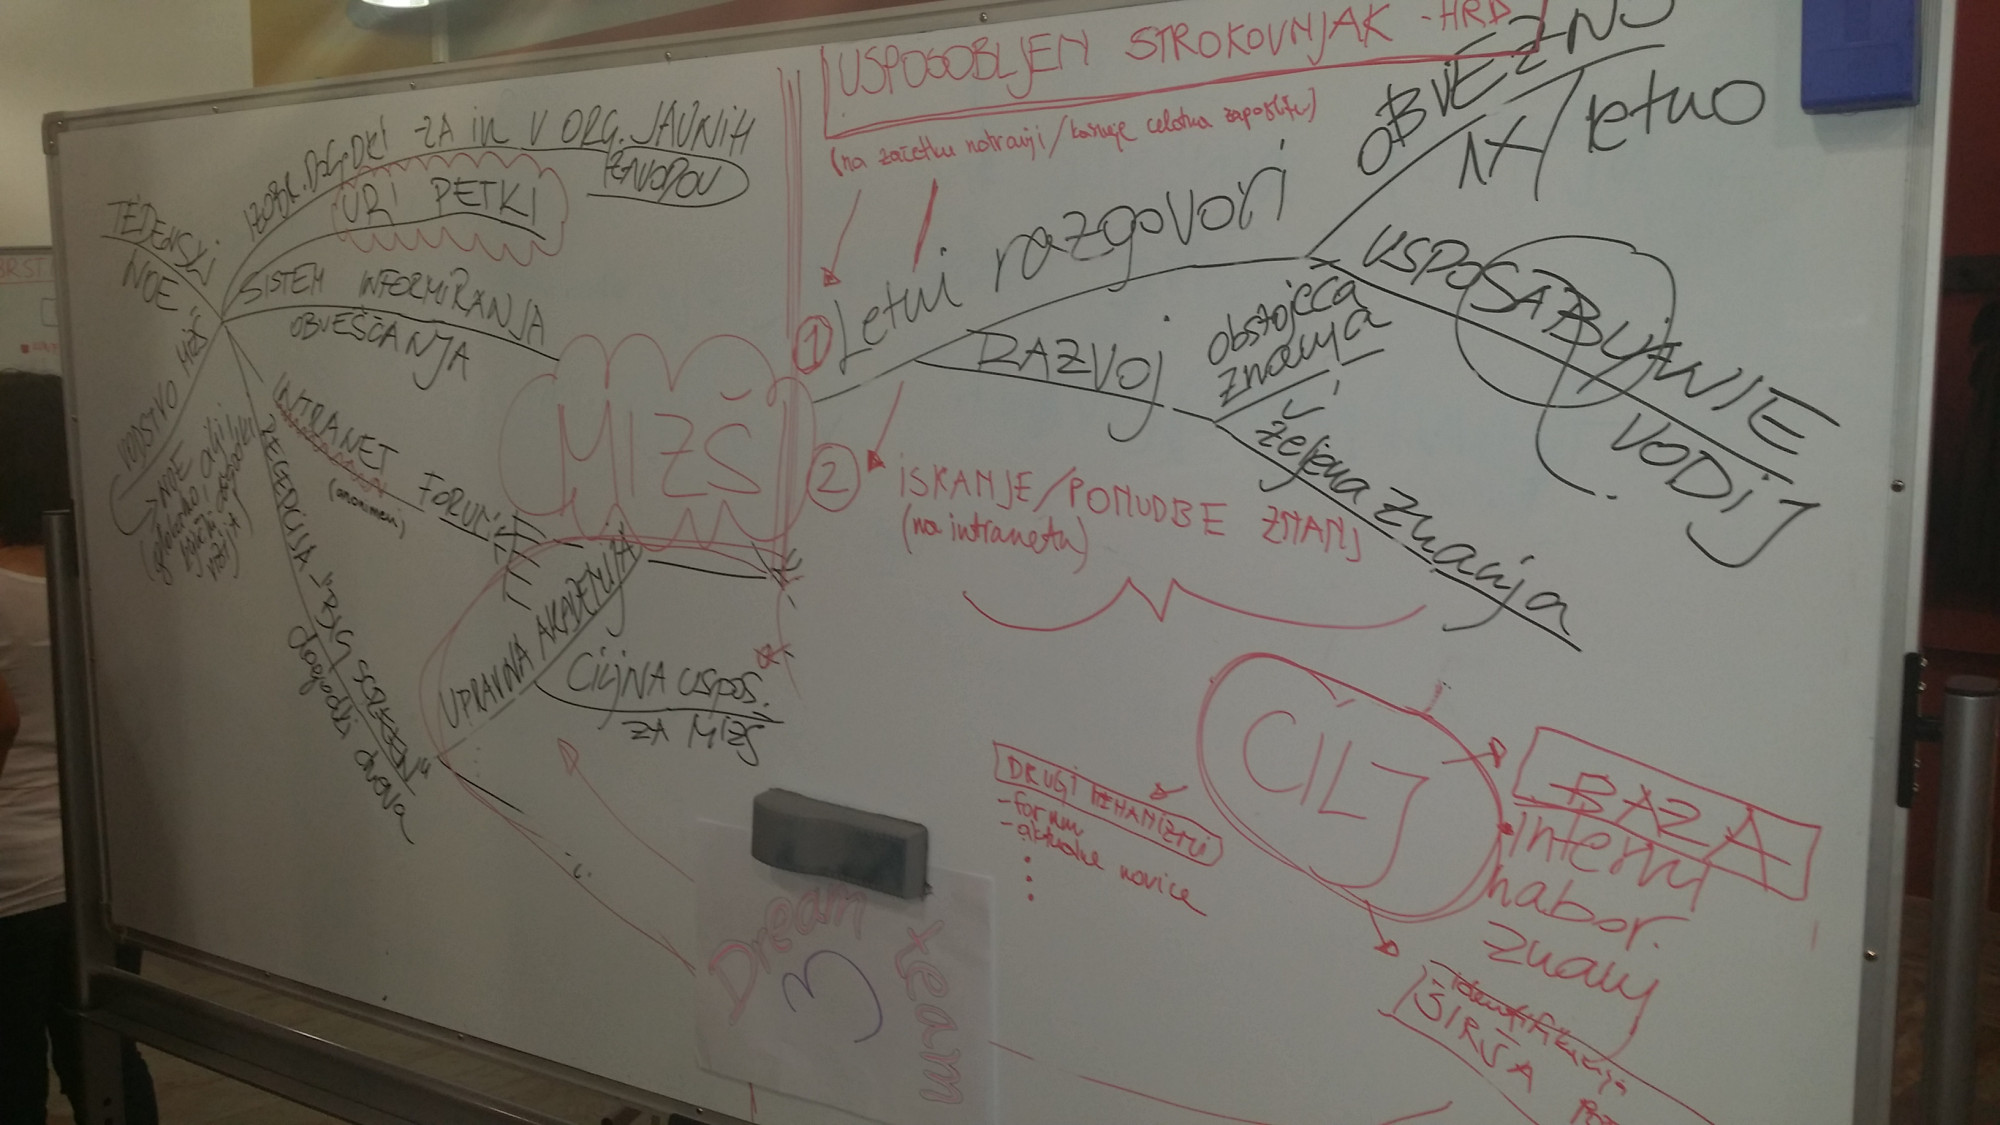 USPOSOBLJEN STROKOVNJAK - HRD
(na začetku notranji / kasneje celotna zaposlitev)
IZOBR. DOGODKI ZA in V ORG. JAVNIH
ZAVODOV
URI PETKI
TEDENSKI
NOE
SISTEM INFORMIRANJA
OBVEŠČANJA
VODSTVO MIZŠ
NOE
INTRANET
(anonimni)
FORUM
"BIG SCREEN"
dogodki dneva
MIZŠ
UPRAVNA AKADEMIJA
CILJNA USPOS.
ZA MIZŠ
1
Letni razgovori
OBVEZNO
1X/letno
USPOSABLJANJE
VODIJ
RAZVOJ
obstoječa
znanja
željena znanja
2
ISKANJE/PONUDBE ZNANJ
(na intranetu)
CILJ
BAZA
interni
nabor.
znanj
DRUGI MEHANIZMI
- forum
- aktualne novice
ŠIRŠA
Dream
team
3